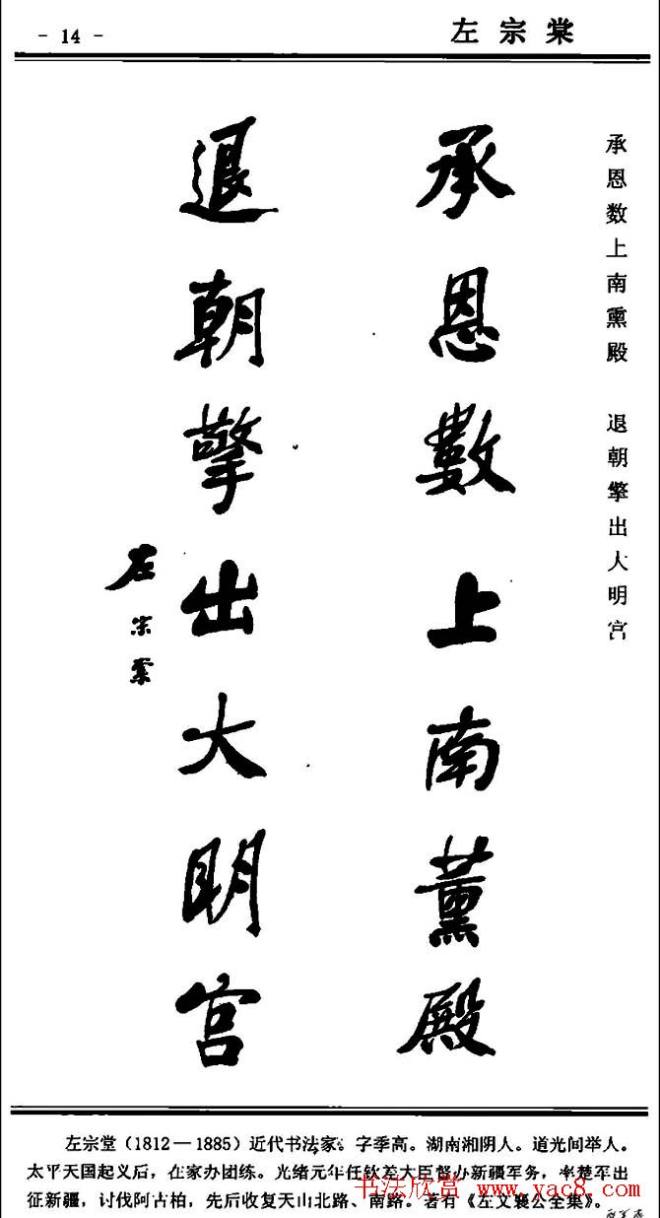 - 14 -
左宗棠
承恩数上南熏殿 退朝擎出大明宫
承恩數上南薰殿
退朝擎出大明宫
左宗棠
左宗堂（1812—1885）近代书法家。字季高。湖南湘阴人。道光间举人。
太平天国起义后，在家办团练。光绪元年任钦差大臣督办新疆军务，率楚军出
征新疆，讨伐阿古柏，先后收复天山北路、南路。著有《左文襄公全集》。
书法欣赏 www.yac8.com